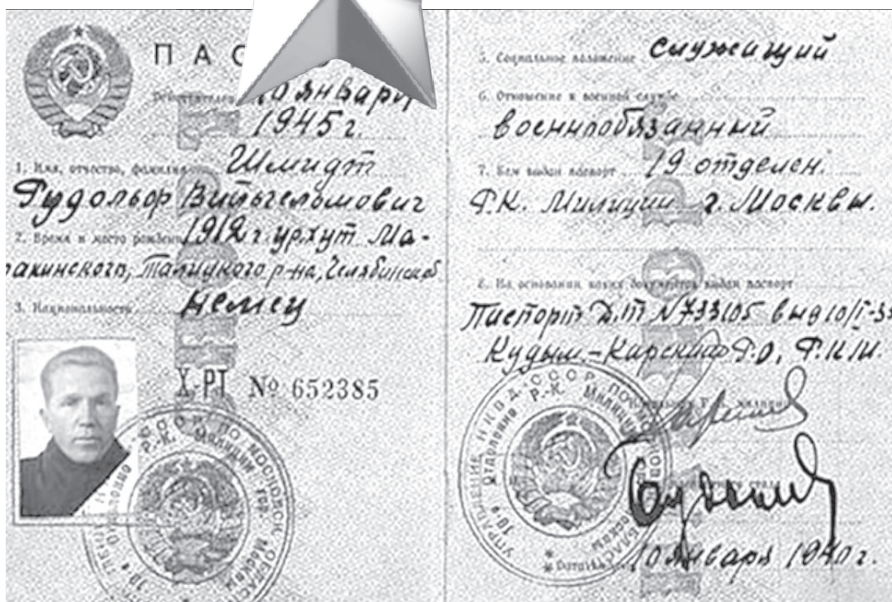 ПАС
10 января
1945 г.
1. Имя, отчество, фамилия Шмидт
Рудольф Вильгельмович
2. Время и место рождения 1912 г. ур. хут. Ма-
ракинского, Талицкого р-на, Челябинской
3. Национальность немец
X-РТ № 652385
5. Социальное положение служищий
6. Отношение к военной службе
военнообязанный
7. Кем выдан паспорт 19 отделен.
Р.К. Милиции г. Москвы.
8. На основании каких документов выдан паспорт
Паспорт Д.М N 733105 выд 10/I-3
Кудым-Карским Р.О. Р.К.М.
10 января 1940 г.